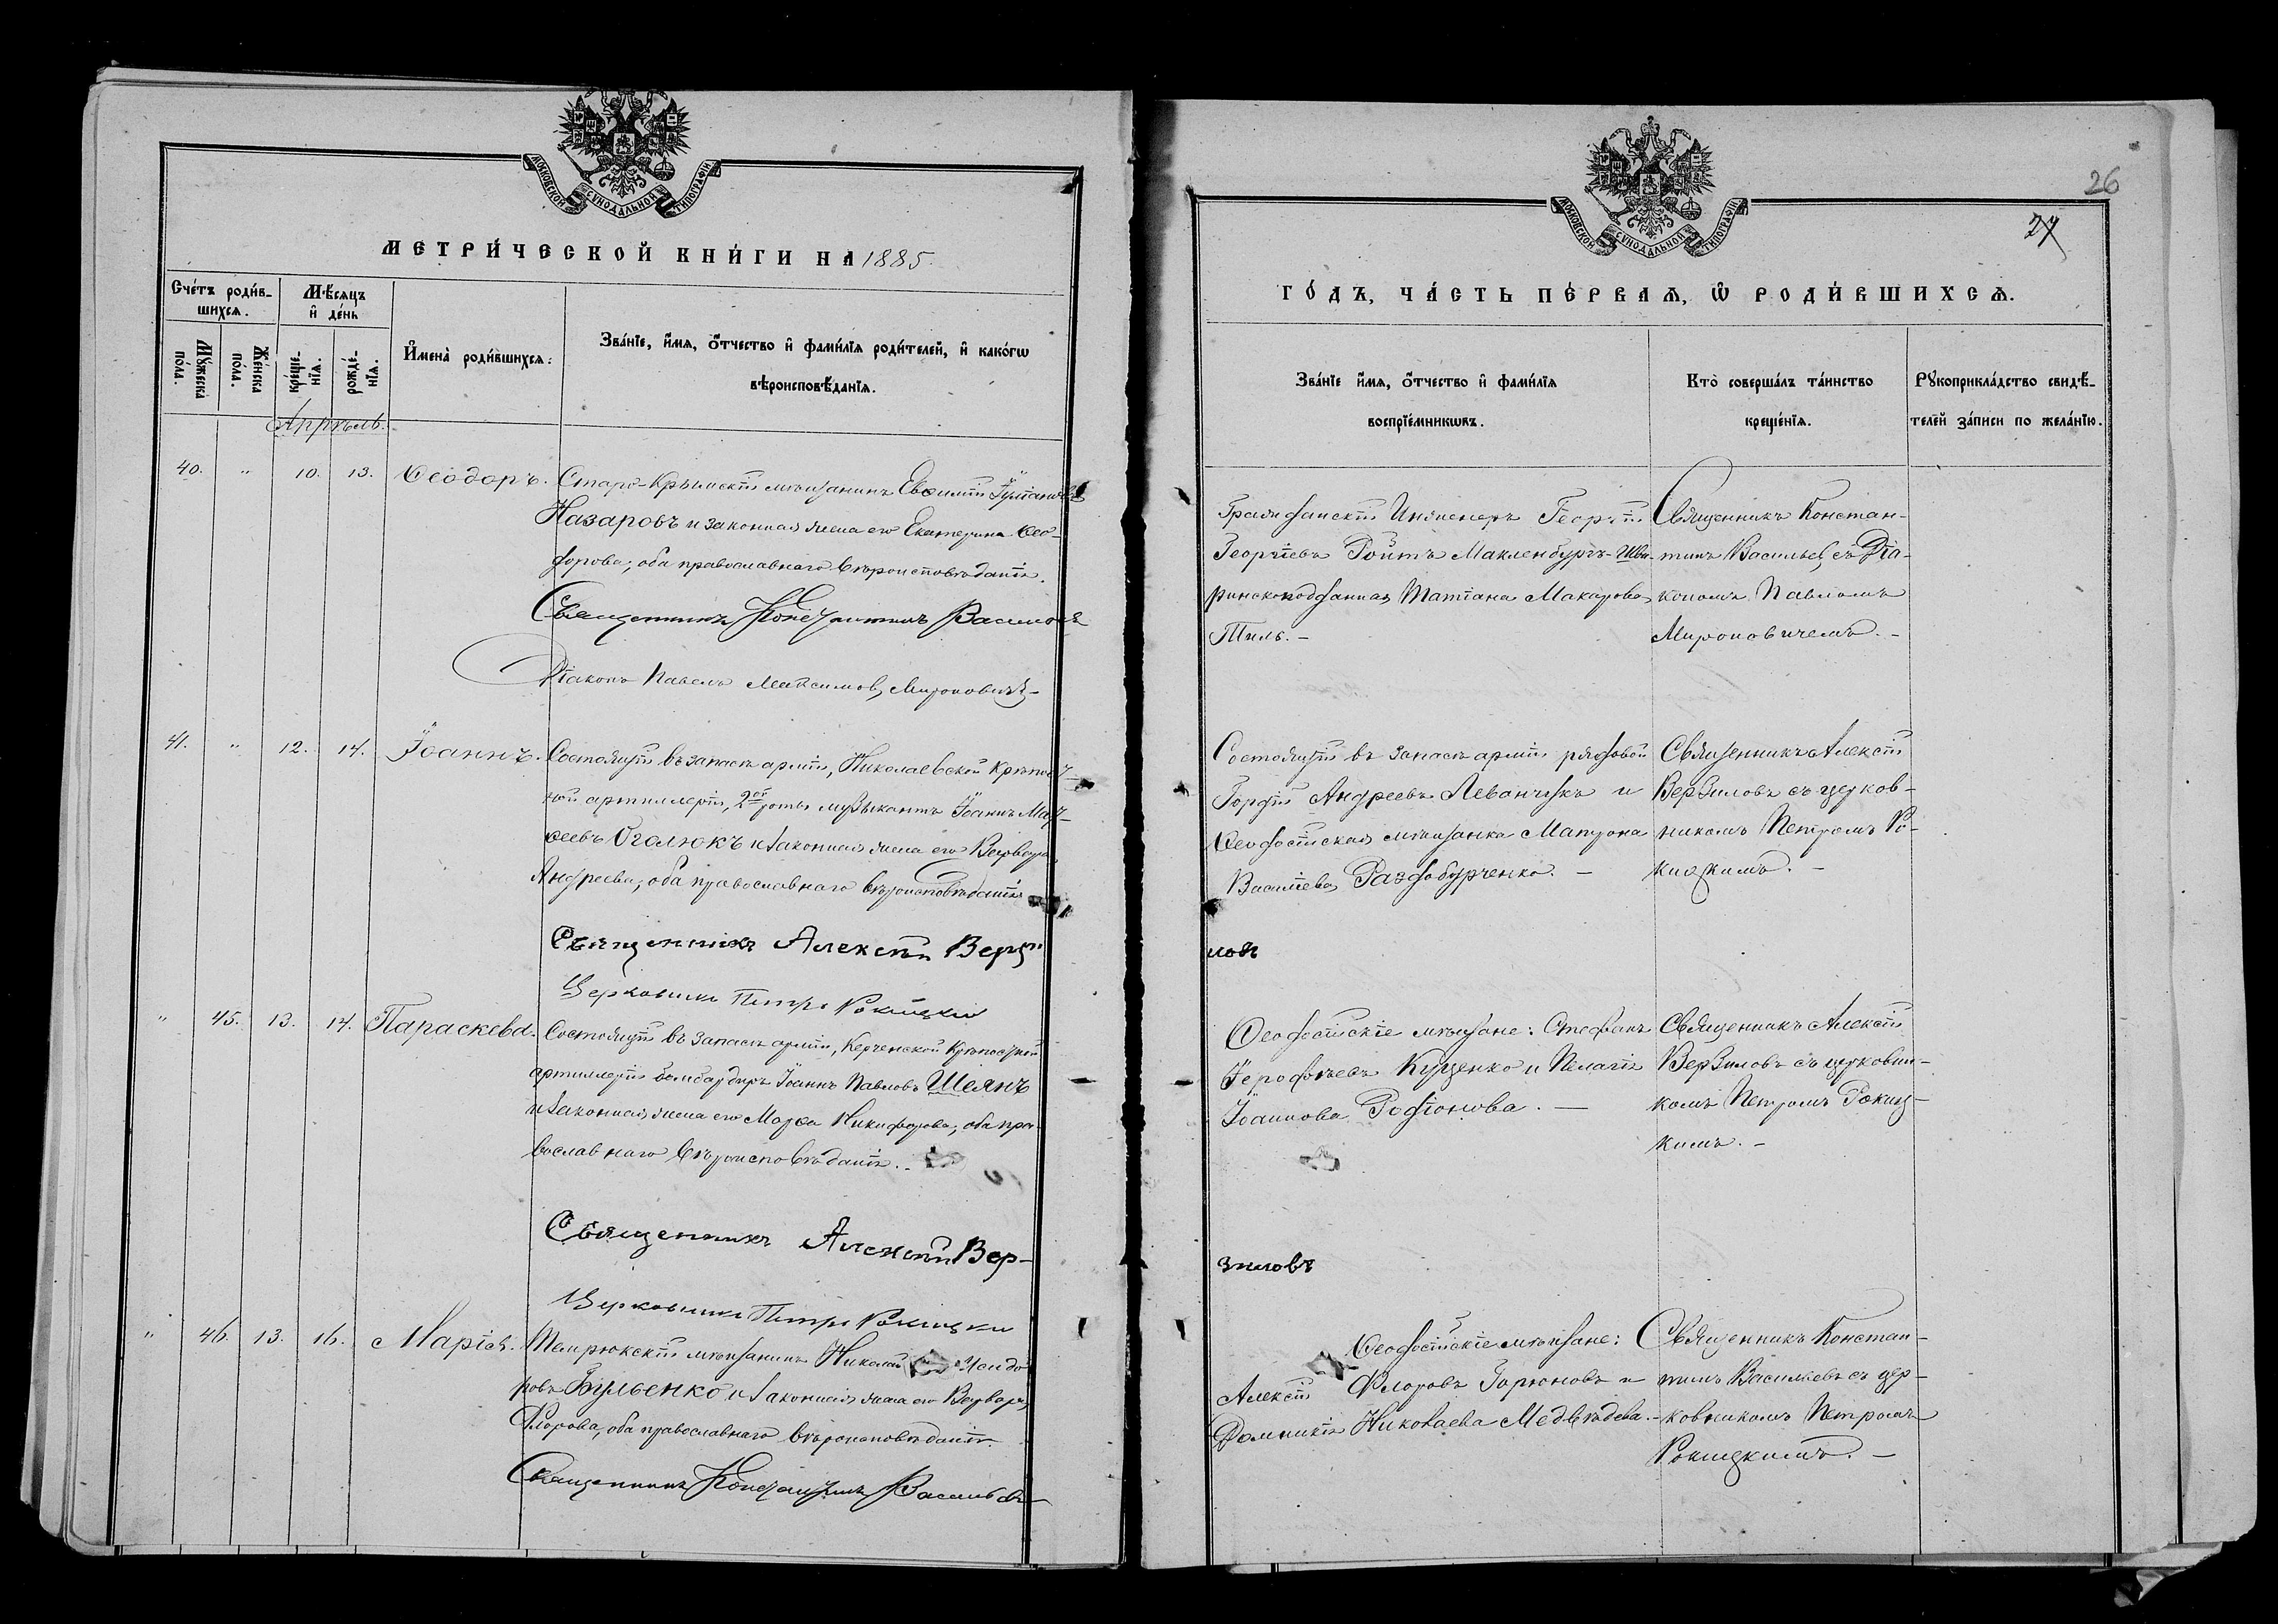 МОСКОВСКОЙ СУНОДАЛЬНОЙ ТИПОГРАФІИ
МЕТРИ́ЧЕСКОЙ КНИ́ГИ НА 1885.
Сче́тъ роди́в-
шихсѧ.
Мꙋ́жеска
по́ла.
Же́нска
по́ла.
Мѣ́сѧцъ
и҆ де́нь
креще́-
нїѧ.
рожде́-
нїѧ.
И҆мена̀ роди́вшихсѧ:
Зва́нїе, и҆́мѧ, ѻ҆́тчество и҆ фами́лїѧ роди́телей, и҆ како́гѡ
вѣроисповѣ́данїѧ.
Апрѣль.
40. " 10. 13. Ѳеодоръ.
Старо-Крымскій мѣщанинъ Евѳимій
Назаровъ и законная жена его Екатерина Ѳео-
дорова; оба православнаго вѣроисповѣданія.
Священникъ Константинъ Васильевъ
Діаконъ Павелъ Максимов, Мироновичъ
41. " 12. 14. Іоаннъ.
Состоящій въ запасѣ арміи, Николаевской крѣпост-
ной артиллеріи, 2ой роты музыкантъ Іоаннъ Мат-
ѳеевъ Оголюкъ и законная жена его Варвара
Андреева, оба православнаго вѣроисповѣданія
Священникъ Алексѣй Верзи
Церковникъ Петръ Рокицкій
" 45. 13. 14. Параскева.
Состоящій въ запасѣ арміи, Керченской крѣпостной
артиллеріи бомбардиръ Іоаннъ Павловъ Шеянъ
и законная жена его Марѳа Никифорова, оба пра-
вославнаго вѣроисповѣданія.
Священникъ Алексѣй Вер-
Церковникъ Петръ Рокицкій
" 46. 13. 16. Марія.
Темрюкскій мѣщанинъ Николай Исидо
ровъ Бульенко и законная жена его Варвара
Флорова, оба православнаго вѣроисповѣданія.
Священникъ Константинъ Васильевъ
26
27
МОСКОВСКОЙ СУНОДАЛЬНОЙ ТИПОГРАФІИ
ГО́ДЪ, ЧА́СТЬ ПЕ́РВАѦ, Ѡ҆ РОДИ́ВШИХСѦ.
Зва́нїе и҆́мѧ, ѻ҆́тчество и҆ фами́лїѧ
воспрїе́мникѡвъ.
Кто̀ соверша́лъ та́инство
креще́нїѧ.
Рꙋкоприкла́дство свидѣ́-
телей за́писи по жела́нїю.
Гражданскій Инженеръ Георгій
Георгіевъ Ройтъ Макленбургъ-Шве-
ринскоподданная Татіана Макарова
Тиль. -
Священникъ Констан-
тинъ Васильев, съ Діа-
кономъ Павломъ
Мироновичемъ. -
Состоящій въ запасѣ арміи рядовой
Гордій Андреевъ Леванчукъ и
Ѳеодосійская мѣщанка Матрона
Василіева Раздобурченко. -
Священникъ Алексій
Верзиловъ съ церков-
никомъ Петромъ Ро-
кицкимъ. -
ловъ
Ѳеодосійскіе мѣщане: Стефанъ
Іероѳеевъ Куценко и Пелагія
Іоаннова Родіонова. -
Священникъ Алексій
Верзиловъ съ церковни-
комъ Петромъ Рокиц-
кимъ. -
зиловъ
Ѳеодосійскіе мѣщане:
Алексій Флоровъ Горюновъ и
Домникія Николаева Медвѣдева. -
Священникъ Констан-
тинъ Васильевъ съ цер-
ковникомъ Петромъ
Рокицкимъ. -